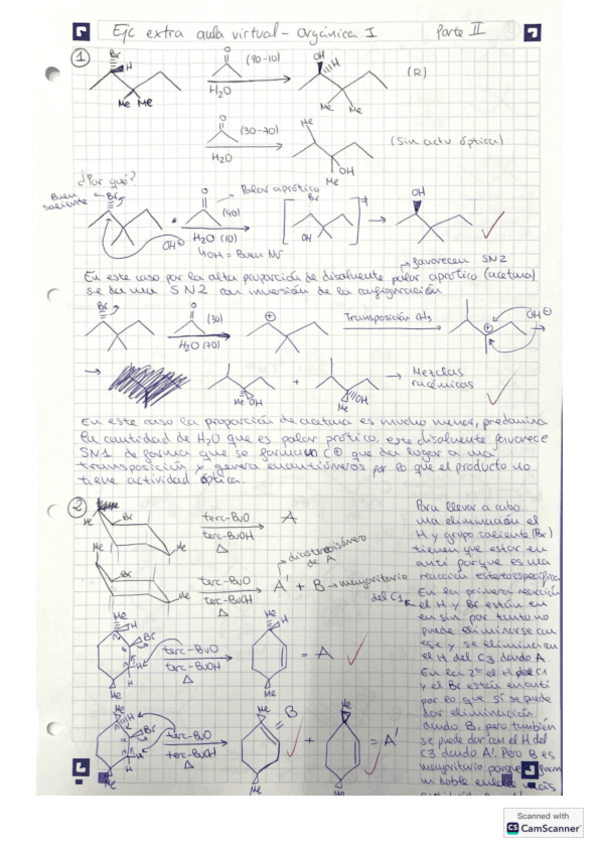 Ejc extra aula virtual - Orgánica I Parte II
1
Br
H
Me Me
O
(90-10)
H₂O
OH
H
Me Me
(R)
O
(30-70)
H₂O
Me
OH
Me
(Sin actv óptica)
¿Por qué?
Buen saliente
Br
OH⊖
O
Polar aprótico
(90)
H₂O (10)
OH = Buen Nu
Br
OH
≠
OH
favorecen SN2
En este caso por la alta proporción de disolvente polar aprótico (acetona)
se da una SN2 con inversión de la configuración
Br
O
(30)
H₂O (70)
⊕
Transposición CH₃
⊕
OH⊖
Me OH
+
Me OH
Mezclas
racémicas
En este caso la proporción de acetona es mucho menor, predomina
la cantidad de H₂O que es polar prótico, este disolvente favorece
SN1 de forma que se forma un C⊕ que da lugar a una
transposición y genera enantiómeros por lo que el producto no
tiene actividad óptica.
2
Br
Me
Me
terc-BuO
terc-BuOH
Δ
A
diastereoisómero
de A
Me
Br
Me
terc-BuO
terc-BuOH
Δ
A' + B → mayoritario
Me
H
Br
H
Me
terc-BuO
terc-BuOH
Δ
Me
H
Me
= A
Me
H
Br
H
Me
terc-BuO
terc-BuOH
Δ
Me
= B
Me
+
Me
Me
= A'
Para llevar a cabo
una eliminación el
H y grupo saliente (Br)
tienen que estar en
anti porque es una
reacción estereoespecífica
En la primera reacción
del C1 el H y Br están en
en sin, por tanto no
puede eliminarse con
ese y se elimina con
el H del C3 dando A.
En la 2ª el H del C1
y el Br están en anti
por lo que sí se puede
dar eliminación
dando B, pero también
se puede dar con el H del
C3 dando A'. Pero B es
mayoritario porque forma
un doble enlace más
Scanned with
CS CamScanner